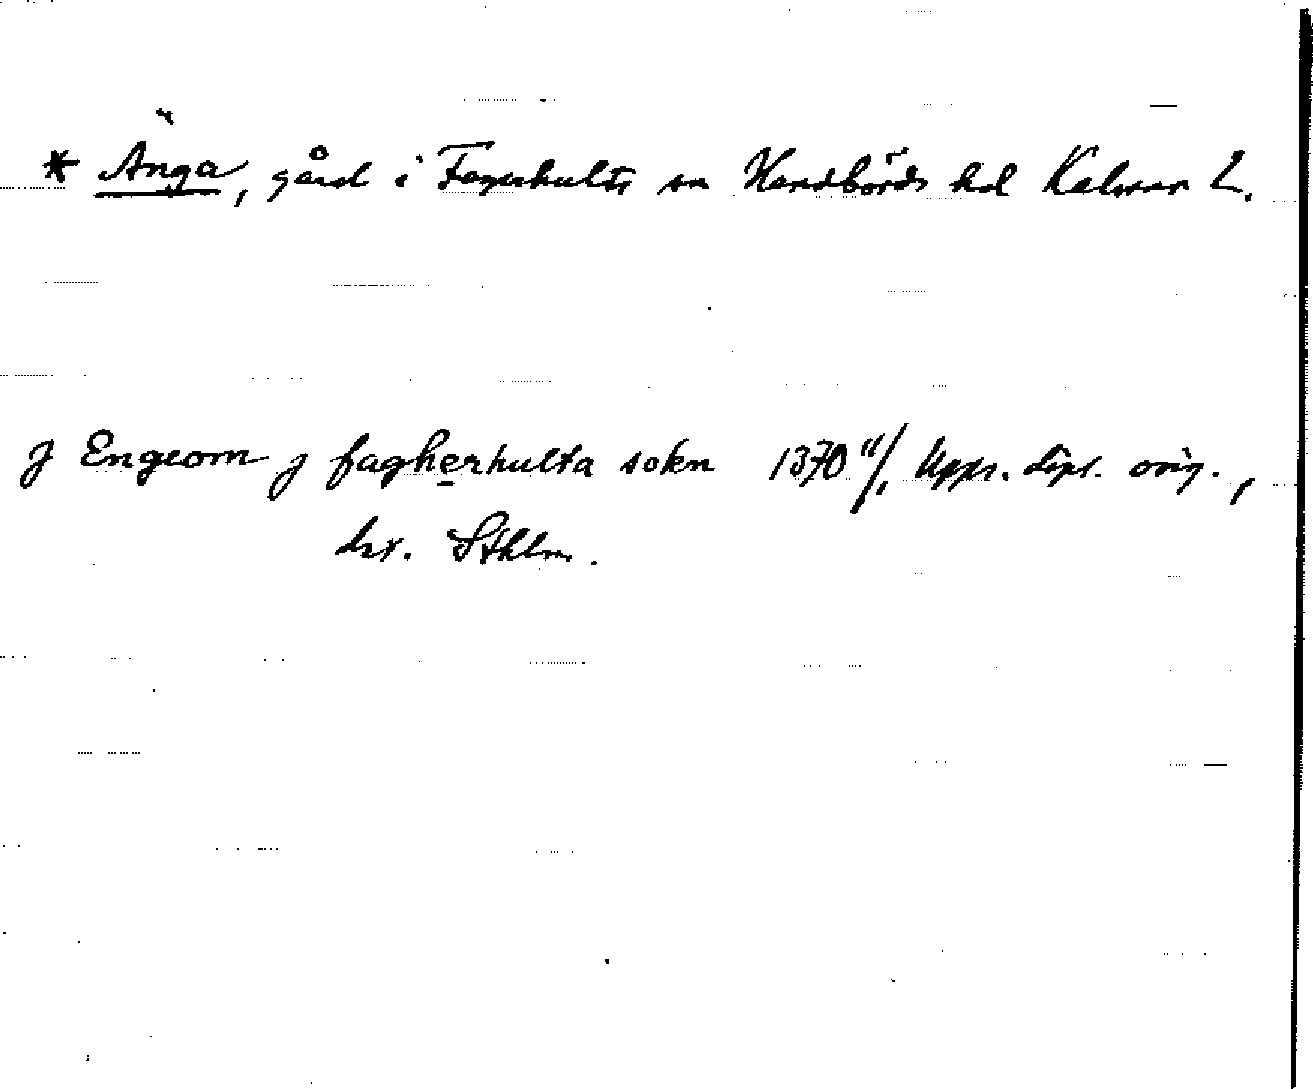 * Änga, gård i Fagerhults sn Handbörds hd Kalmar L.
J Engeom j fagherhulta sokn 1370 11/1 Upps. dipl. orig.,
dsv. Sthlm.